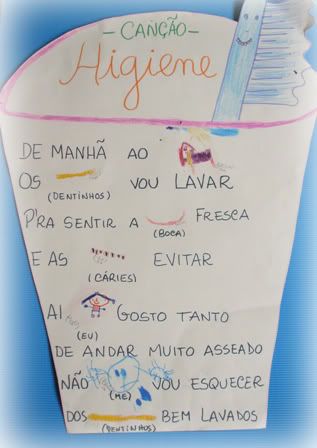 - CANÇÃO -
Higiene
DE MANHÃ AO
OS VOU LAVAR
(DENTINHOS)
P'RA SENTIR A FRESCA
(BOCA)
E AS EVITAR
(CÁRIES)
AI GOSTO TANTO
(EU)
DE ANDAR MUITO ASSEADO
NÃO VOU ESQUECER
(ME)
DOS BEM LAVADOS
(DENTINHOS)